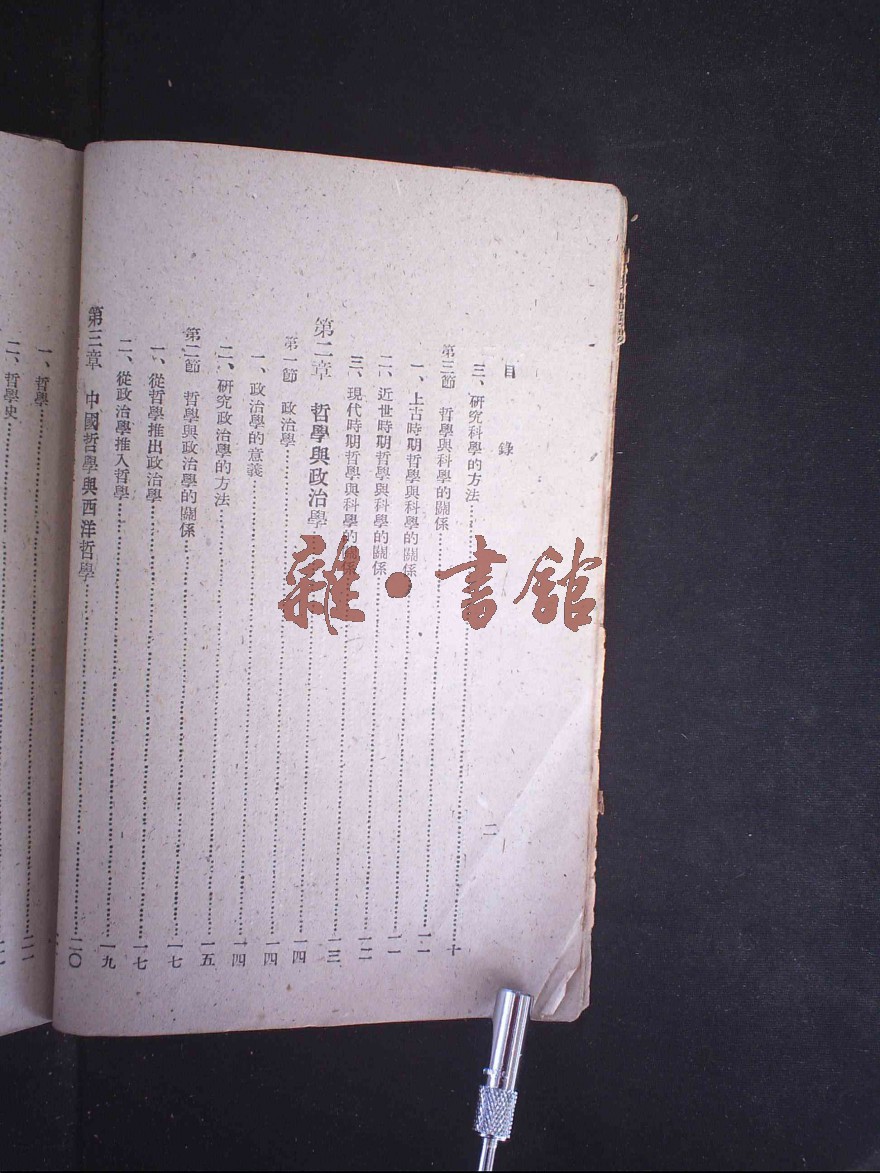 目錄
二
三、研究科學的方法……十
第三節 哲學與科學的關係……一一
一、上古時期哲學與科學的關係……一一
二、近世時期哲學與科學的關係……一二
三、現代時期哲學與科學的關係……一三
第二章 哲學與政治學……一四
第一節 政治學……一四
一、政治學的意義……一四
二、研究政治學的方法……一五
第二節 哲學與政治學的關係……一七
一、從哲學推出政治學……一七
二、從政治學推入哲學……一九
第三章 中國哲學與西洋哲學……二〇
一、哲學……
二、哲學史……
雜·書館